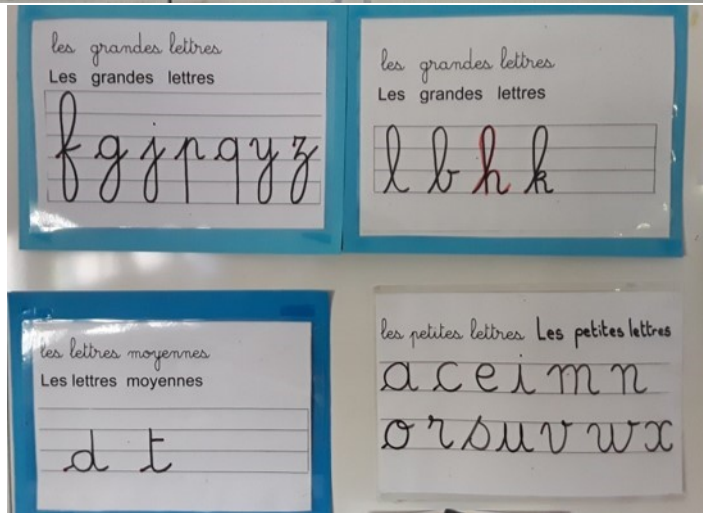 les grandes lettres
Les grandes lettres
f g j p q y z
les grandes lettres
Les grandes lettres
l b h k
les lettres moyennes
Les lettres moyennes
d t
les petites lettres Les petites lettres
a c e i m n
o r s u v w x